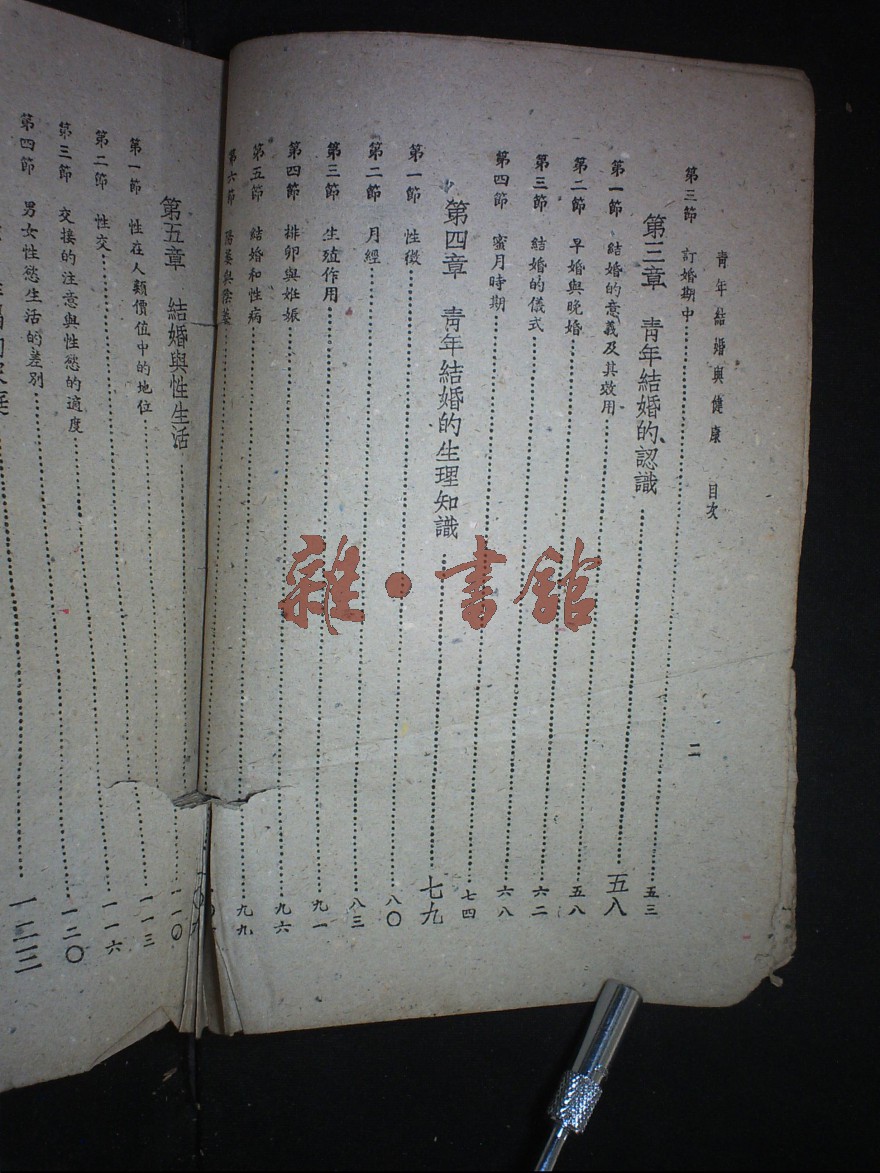 青年結婚與健康 目次 二
第三節 訂婚期中 五三
第三章 青年結婚的認識 五八
第一節 結婚的意義及其效用 五八
第二節 早婚與晚婚 六二
第三節 結婚的儀式 六八
第四節 蜜月時期 七四
第四章 青年結婚的生理知識 七九
第一節 性徵 八〇
第二節 月經 八三
第三節 生殖作用 九一
第四節 排卵與妊娠 九六
第五節 結婚和性病 九九
第六節
第五章 結婚與性生活
第一節 性在人類價值中的地位 一一〇
第二節 性交 一一三
第三節 交接的注意與性慾的適度 一一六
第四節 男女性慾生活的差別 一二〇
一二三
雜·書館